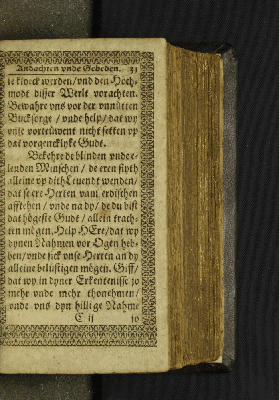 Andachten vnde Gebeden. 31
werden/vnd den Hoch-
modt disser Werlt vorachten.
Bewahre vns vor der vnnütten
Bucksorge / vnde help/ dat wy
vnse vortruwent nicht setten vp
dat vorgencklyke Gudt.
Bekehre de blinden vnde
lenden Minschen / de eren flyth
alleine vp dith Leuendt wenden/
dat se ere Herten vam erdischen
afftehen / vnde na dy/ de du bist
dat högeste Gudt / allein trach-
ten mögen. Help HEre/dat wy
dynen Nahmen vor Ogen heb-
ben/vnde sick vnse Herten an dy
alleine belüstigen mögen. Giff/
dat wy in dyner Erkentenisse jo
mehr vnde mehr thonehmen/
vnde vns dyn hillige Nahme
C ij jo